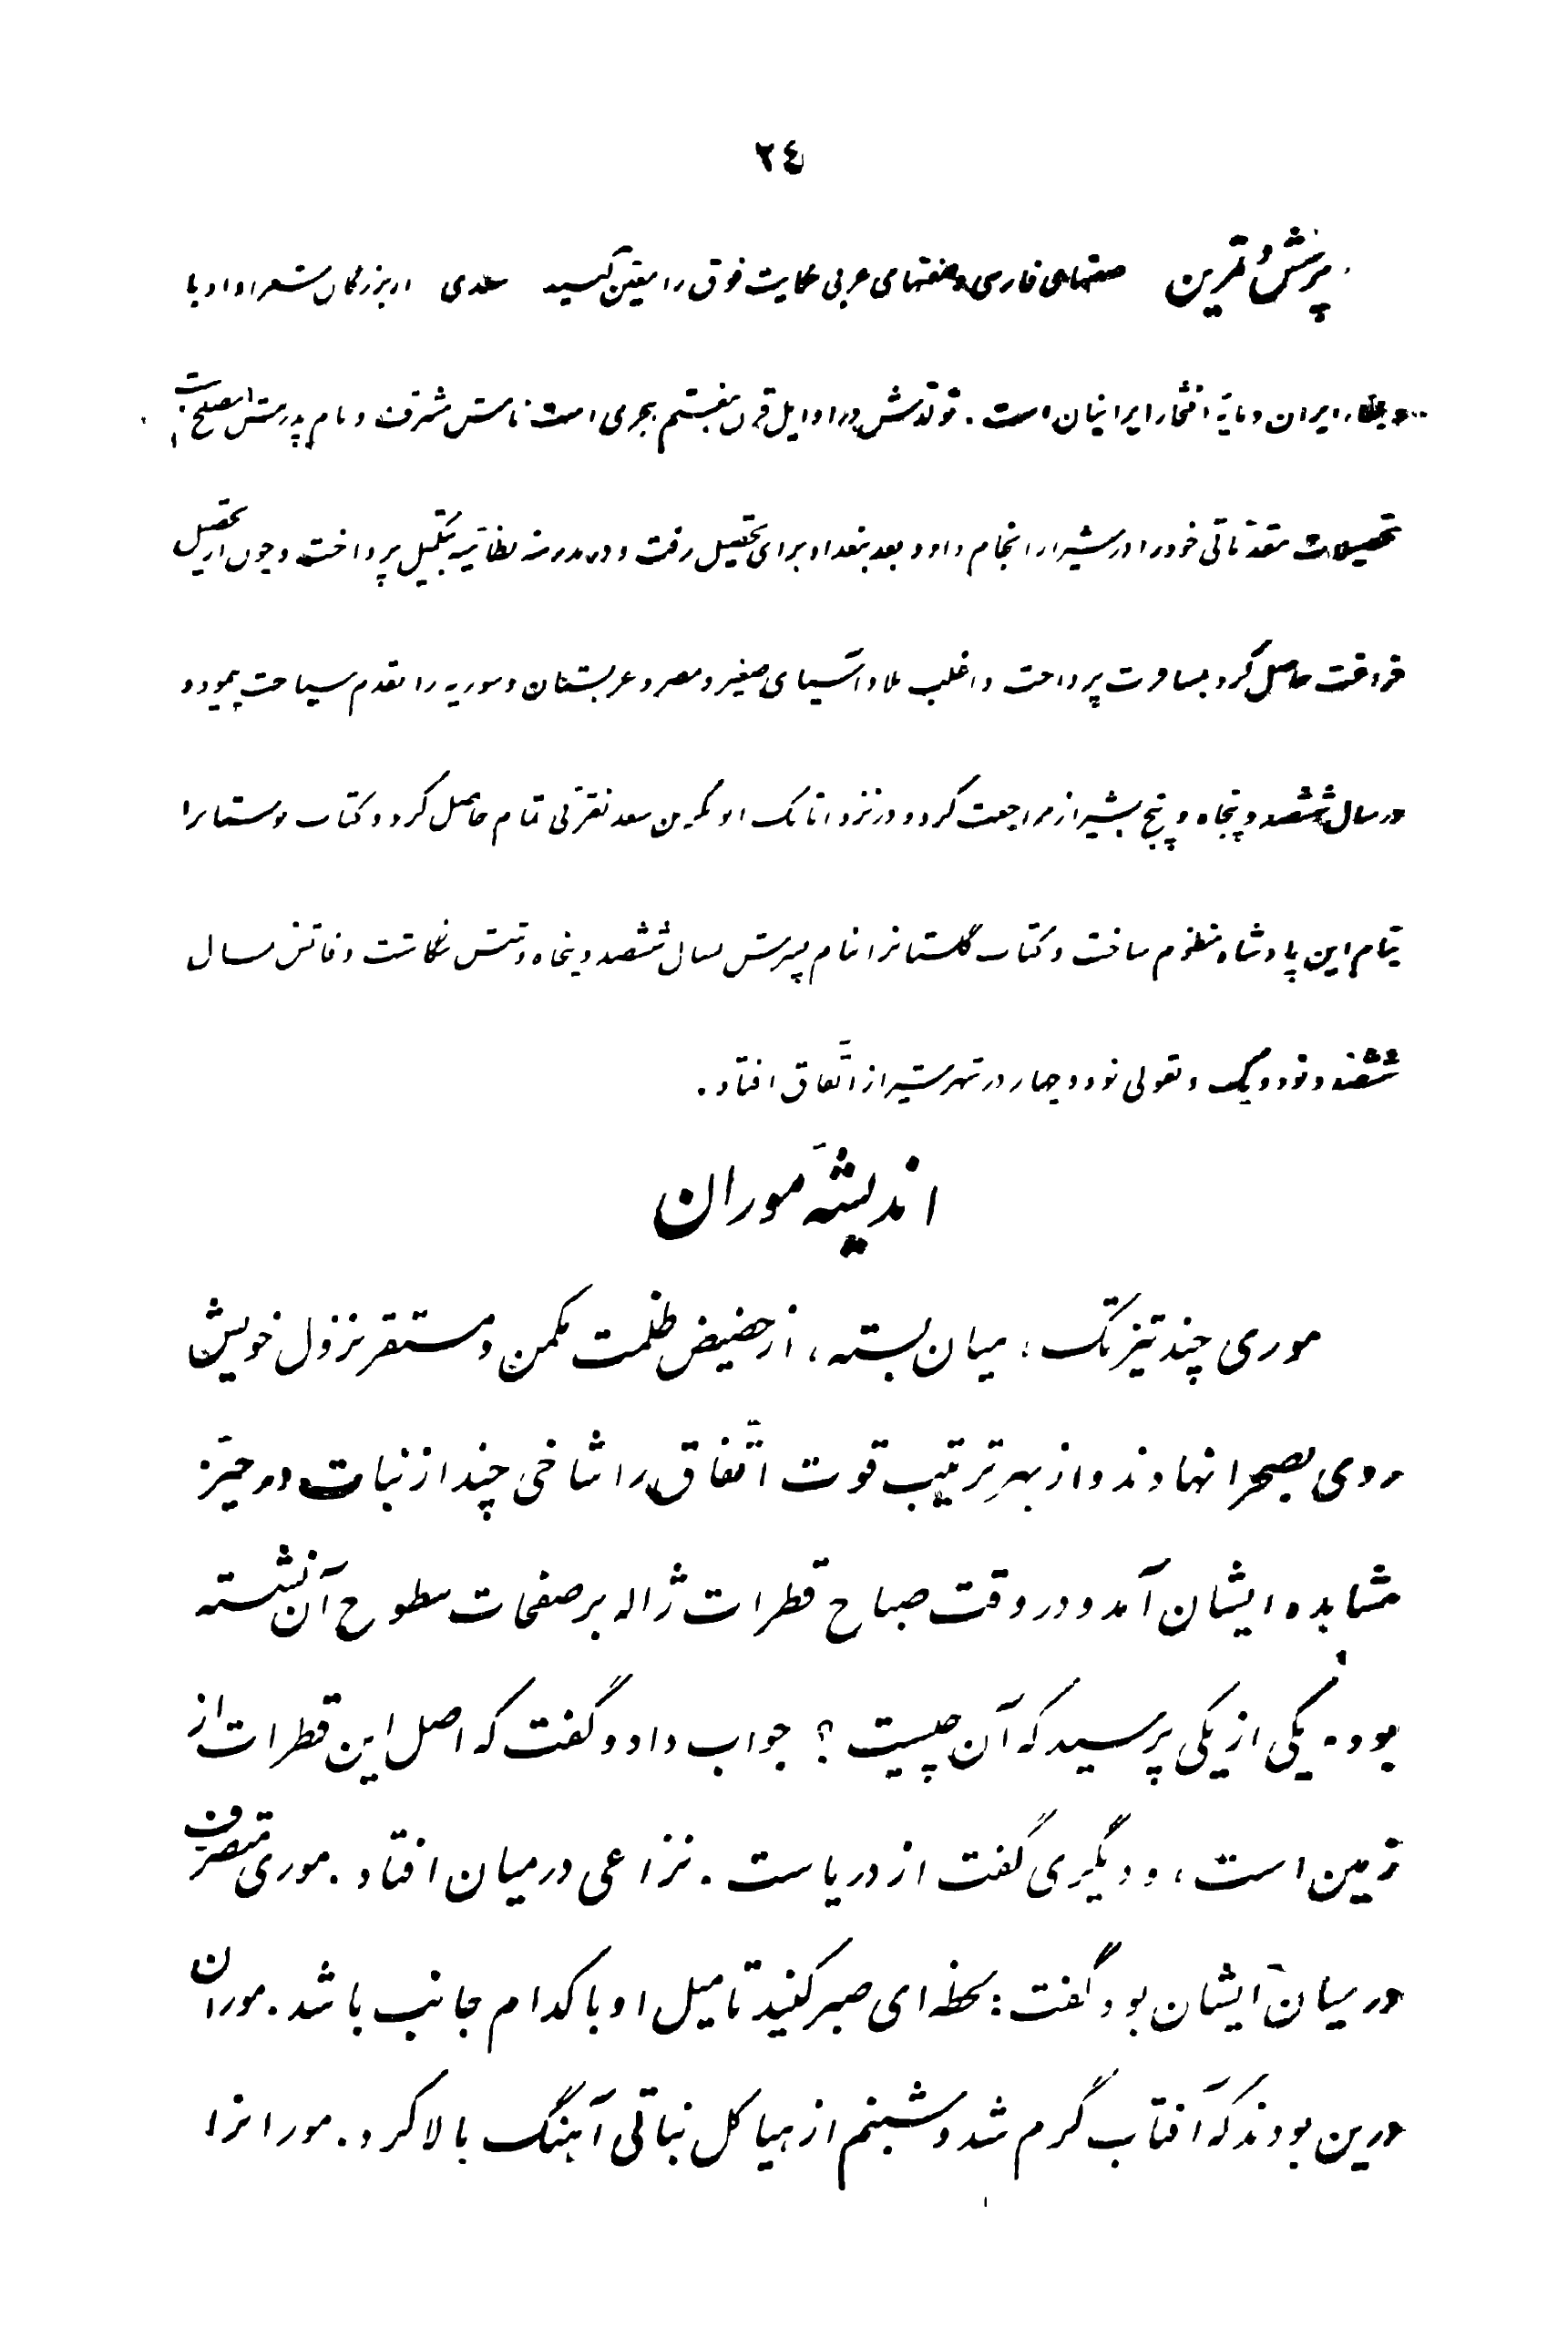 ٢٤
پرسش و تمرین صفتهای فارسی و صفتهای عربی حکایت فوق را معین کنید سعدی از بزرگان شعرا و ادبا
و عرفاء ایران و مایهٔ افتخار ایرانیان است . تولدش در اوایل قرن هفتم هجری است نامش مشرف و نام پدرش مصلح است
تحصیلات مقدماتی خود را در شیراز انجام داد و بعد ببغداد برای تحصیل رفت و در مدرسه نظامیه بتکمیل پرداخت و چون از تحصیل
فراغت حاصل کرد بمسافرت پرداخت و اغلب بلاد آسیای صغیر و مصر و عربستان و سوریه را بقدم سیاحت پیمود و
در سال ششصد و پنجاه و پنج بشیراز مراجعت کرد و در نزد اتابک ابوبکر بن سعد تقربی تمام حاصل کرد و کتاب بوستانرا
بنام این پادشاه منظوم ساخت و کتاب گلستانرا بنام پسرش بسال ششصد و پنجاه و شش نگاشت وفاتش بسال
ششصد و نود و یک و بقولی نود و چهار در شهر شیراز اتّفاق افتاد .
اندیشهٔ موران
موری چند تیزتک ، میان بسته ، از حضیض ظلمت مکمن و مستقر نزول خویش
روی بصحرا نهادند و از بهرِ ترتیب قوت اتّفاق را شاخی چند از نبات در حیّز
مشاهده ایشان آمد و در وقت صباح قطرات ژاله بر صفحات سطوح آن نشسته
بود . یکی از یکی پرسید که آن چیست ؟ جواب داد و گفت که اصل این قطرات از
زمین است ، و دیگری گفت از دریاست . نزاعی در میان افتاد . موری متصرف
در میان ایشان بود گفت : لحظه‌ای صبر کنید تا میل او با کدام جانب باشد . موران
درین بودند که آفتاب گرم شد و شبنم از هیاکل نباتی آهنگ بالا کرد . مورانرا